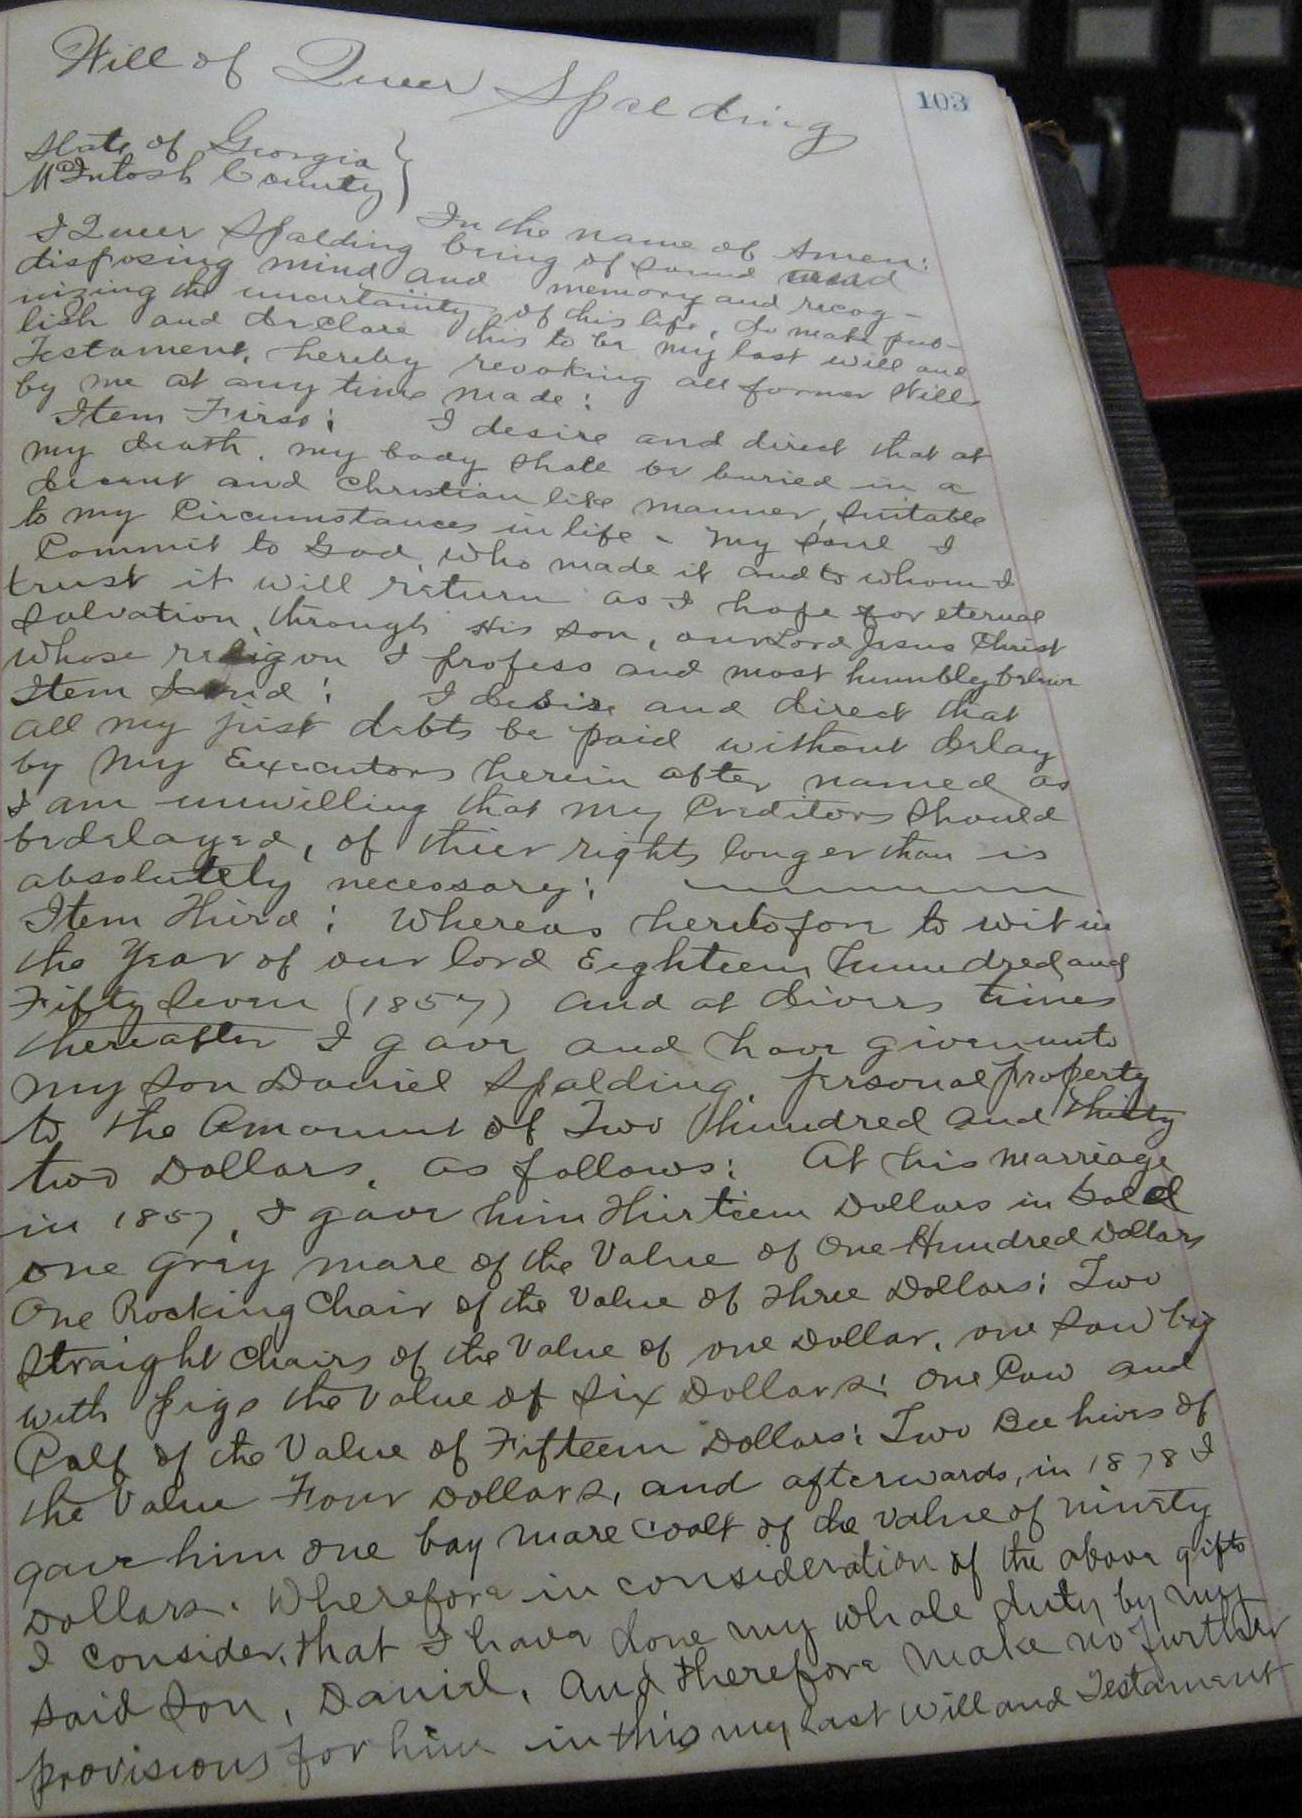 Will of Queer Spalding
103
State of Georgia
McIntosh County
In the name of Amen:
I Queer Spalding being of Sound and
disposing mind and memory and recog-
nizing the uncertainity of this life, do make pub-
lish and declare this to be my last will and
Testament, hereby revoking all former Wills
by me at any time made:
Item First: I desire and direct that at
my death, my body shall be buried in a
decent and Christian like manner, Suitable
to my Circumstances in life - My Soul I
Commit to God, who made it and to whom I
trust it will return as I hope for eternal
Salvation, through His Son, our Lord Jesus Christ
Whose religion I profess and most humbly believe
Item Second: I desire and direct that
all my just debts be paid without delay
by my Executors herein after named as
I am unwilling that my Creditors Should
be delayed, of thier rights longer than is
absolutely necessary:
Item Third: Whereas heretofore to wit in
the Year of our lord Eighteen hundred and
Fifty Seven (1857) and at divers times
thereafter I gave and have given unto
my Son Daniel Spalding, personal property
to the Amount of Two hundred and thirty
two Dollars, as follows: At his marriage
in 1857, I gave him Thirteen Dollars in Gold
one gray mare of the Value of One Hundred Dollars
One Rocking Chair of the Value of three Dollars: Two
Straight Chairs of the Value of one Dollar, one Sow big
with pigs the Value of Six Dollars: one Cow and
Calf of the Value of Fifteen Dollars: Two Bee hives of
the Value Four Dollars, and afterwards, in 1878 I
gave him one bay mare coalt of the value of ninety
Dollars. Wherefore in consideration of the above gifts
I consider, that I have done my whole duty by my
said Son, Daniel, and therefore make no further
provisions for him in this my last Will and Testament